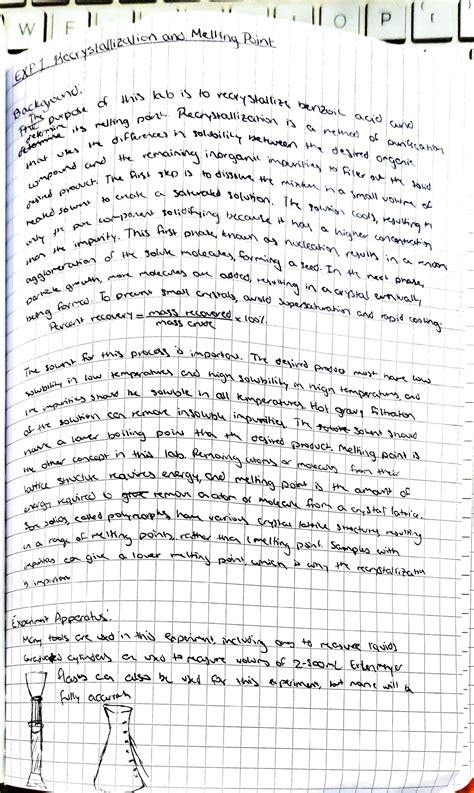 W F I O P {
EXP 1 Recrystallization and Melting Point
Background:
The purpose of this lab is to recrystallize benzoic acid and
determine its melting point. Recrystallization is a method of purification
that uses the differences in solubility between the desired organic
compound and the remaining inorganic impurities to filter out the solid
desired product. The first step is to dissolve the mixture in a small volume of
heated solvent to create a saturated solution. The solution cools, resulting in
only the pure component solidifying because it has a higher concentration
than the impurity. This first phase, known as nucleation results in a random
agglomeration of the solute molecules, forming a seed. In the next phase,
particle growth, more molecules are added, resulting in a crystal eventually
being formed. To prevent small crystals, avoid supersaturation and rapid cooling.
Percent recovery = mass recovered / mass crude x 100%
The solvent for this process is important. The desired product must have low
solubility in low temperatures and high solubility in high temperatures, and
the impurities should be soluble in all temperatures. Hot gravity filtration
of the solution can remove insoluble impurities. The solvent should
have a lower boiling point than the desired product. Melting point is
the other concept in this lab. Removing atoms or molecules from their
lattice structure requires energy, and melting point is the amount of
energy required to remove an atom or molecule from a crystal lattice.
Some solids, called polymorphs have various crystal lattice structures, resulting
in a range of melting points, rather than 1 melting point. Samples with
impurities can give a lower melting point, which is why the recrystallization
is important
Experiment Apparatus:
Many tools are used in this experiment, including ones to measure liquids
Graduated cylinders are used to measure volume of 2-500mL Erlenmeyer
flasks can also be used for this experiment, but none will be
fully accurate